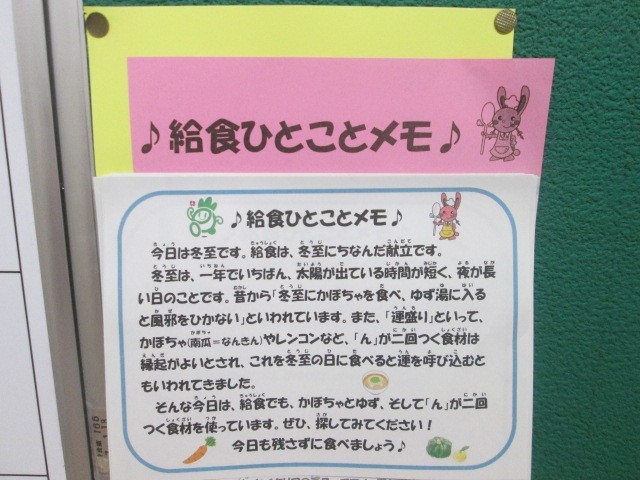 ♪給食ひとことメモ♪
♪給食ひとことメモ♪
今日は冬至です。給食は、冬至にちなんだ献立です。
冬至は、一年でいちばん、太陽が出ている時間が短く、夜が長
い日のことです。昔から「冬至にかぼちゃを食べ、ゆず湯に入る
と風邪をひかない」といわれています。また、「運盛り」といって、
かぼちゃ(南瓜=なんきん)やレンコンなど、「ん」が二回つく食材は
縁起がよいとされ、これを冬至の日に食べると運を呼び込むと
もいわれてきました。
そんな今日は、給食でも、かぼちゃとゆず、そして「ん」が二回
つく食材を使っています。ぜひ、探してみてください!
今日も残さずに食べましょう♪